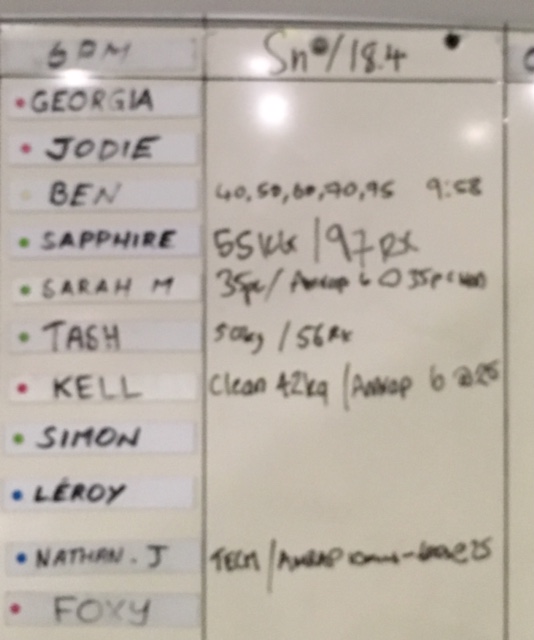 6PM Sn /18.4
GEORGIA
JODIE
BEN 40,50,60,70,75 9:58
SAPPHIRE 55 /97 Rx
SARAH M 35 / Amrap 6
TASH 50kg / 56 Rx
KELL Clean 42kg / Amrap 6 @25
SIMON
LEROY
NATHAN. J TECH / AMRAP @25
FOXY